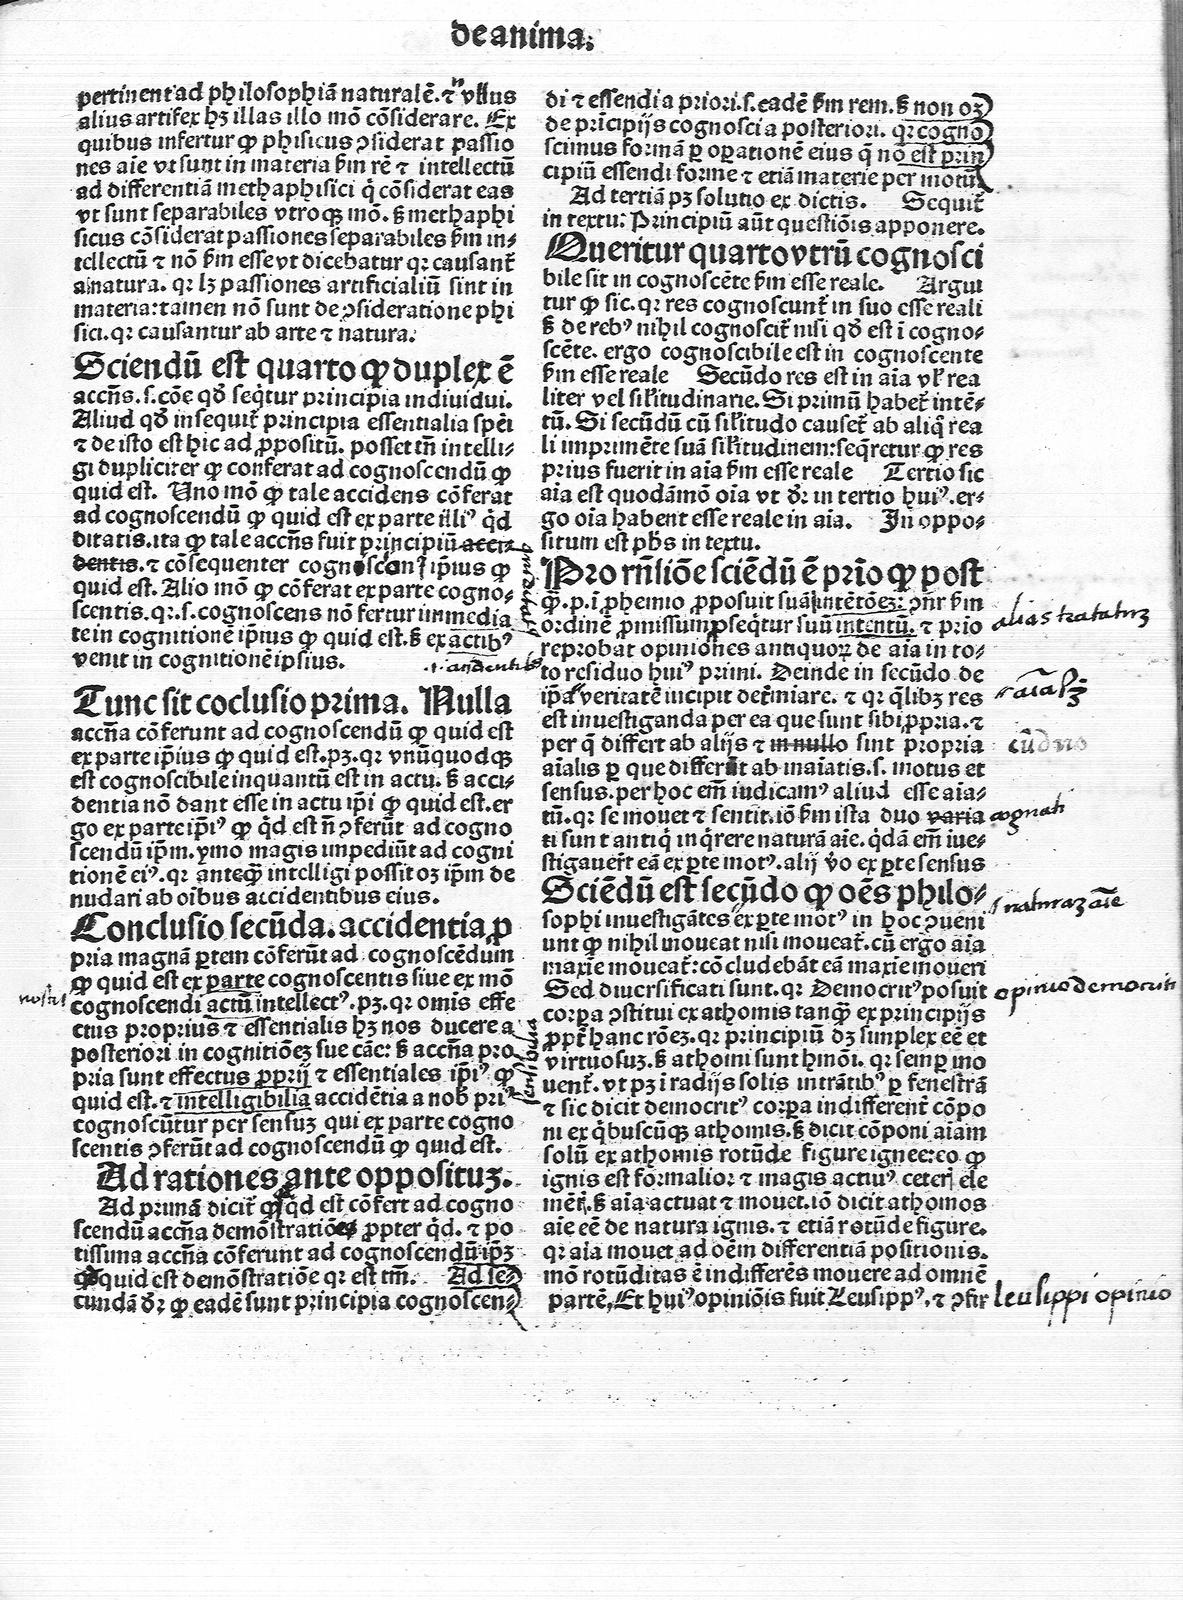 de anima.
pertinent ad philosophiā naturalē. ⁊ vllus
alius artifex hꝫ illas illo mō cōsiderare. Ex
quibus infertur ꝙ phisicus ↄsiderat passio
nes aīe vt sunt in materia ẜm rē ⁊ intellectū
ad differentiā methaphisici q̇ cōsiderat eas
vt sunt separabiles vtroqꝫ mō. ẜ methaphi
sicus cōsiderat passiones separabiles ẜm in⸗
tellectū ⁊ nō ẜm esse vt dicebatur qꝛ causant̃
a natura. qꝛ lꝫ passiones artificialiū sint in
materia: tamen nō sunt de ↄsideratione phi
sici. qꝛ causantur ab arte ⁊ ñ natura.
Sciendū est quarto ꝙ duplex ē
accñs. s. cōe qđ seq̄tur principia indiuidui.
Aliud qđ insequit̃ principia essentialia spēi
⁊ de isto est hic ad ꝓpositū. posset tñ intelli⸗
gi dupliciter ꝙ conferat ad cognoscendū ꝙ
quid est. Uno mō ꝙ tale accidens cōferat
ad cognoscendū ꝙ quid est ex parte illiꝰ q̇d
ditatis. ita ꝙ tale accñs fuit principiū acci⸗
dentis. ⁊ cōsequenter cognoscendi ip̄ius ꝙ
quid est. Alio mō ꝙ cōferat ex parte cogno⸗
scentis. qꝛ. s. cognoscens nō fertur immedia
te in cognitionē ip̄ius ꝙ quid est. ẜ ex actibꝰ
venit in cognitionē ipsius.
Tunc sit coclusio prima. Nulla
accña cōferunt ad cognoscendū ꝙ quid est
ex parte ip̄ius ꝙ quid est. pꝫ. qꝛ vnūquodqꝫ
est cognoscibile inquantū est in actu. ẜ acci⸗
dentia nō dant esse in actu ip̄i ꝙ quid est. er
go ex parte ip̄iꝰ ꝙ q̇d est ñ ↄferūt ad cogno
scendū ip̄m. ymo magis impediūt ad cogni
tionē eiꝰ. qꝛ anteq̄ꝫ intelligi possit oꝫ ip̄m de
nudari ab oibus accidentibus eius.
Conclusio secūda. accidentia ꝓ
pria magnā ꝑtem cōferūt ad cognoscēdum
ꝙ quid est ex parte cognoscentis siue ex mō
nostri
cognoscendi actū intellectꝰ. pꝫ. qꝛ omīs effe
ctus proprius ⁊ essentialis hꝫ nos ducere a
posteriori in cognitiōeꝫ sue cāe: ẜ accña pro
pria sunt effectus ꝓprij ⁊ essentiales ip̄iꝰ ꝙ
quid est. ⁊ intelligibilia accidētia a nob̄ priꝰ
cognoscūtur per sensuꝫ qui ex parte cogno
scentis ↄferūt ad cognoscendū ꝙ quid est.
Ad rationes ante oppositum.
Ad primā dicit̃ ꝙ q̇d est cōfert ad cogno
scendū accñā demōstratiōes ꝓpter q̇d. ⁊ po
tissima accñā cōferunt ad cognoscendū ip̄ꝫ
quid est demōstratiōe qꝛ est tm̄. Ad se⸗
cundā dꝛ̄ ꝙ eadē sunt principia cognoscen⸗
di ⁊ essendi a priori. s. eadē ẜm rem. ẜ non oꝫ
de prīcipijs cognosci a posteriori. qꝛ cogno
scimus formā ꝑ oꝑationē eius q̄ nō est prin
cipiū essendi forme ⁊ etiā materie per motū.
Ad tertiā pꝫ solutio ex dictis. Sequit̃
in textu: Principiū aūt questiōis apponere.
Queritur quarto vtrū cognosci
bile sit in cognoscēte ẜm esse reale. Argui
tur ꝙ sic. qꝛ res cognoscunt̃ in suo esse reali
ẜ de rebꝰ nihil cognoscit̃ nisi qđ est ī cogno⸗
scēte. ergo cognoscibile est in cognoscente
ẜm esse reale Secūdo res est in aīa vl̓ rea
liter vel sil̓itudinarie. Si primū habet̃ intē⸗
tū. Si secūdū cū sil̓itudo causet̃ ab aliq̄ rea
li imprimēte suā sil̓itudinem: seq̄retur ꝙ res
prius fuerit in aīa ẜm esse reale Tertio sic
aīa est quodāmō oīa vt dꝛ̄ in tertio huiꝰ. er⸗
go oīa habent esse reale in aīa. In oppo⸗
situm est ph̄s in textu.
Pro rñsiōe sciēdū ē prīo ꝙ post
q̄ꝫ. p. ī ꝓhemio ꝓposuit suā intētōeꝫ: ↄñr ẜm
alias tractaturꝫ
ordinē ꝓmissum ꝓseq̄tur suū intentū. ⁊ prīo
reprobat opiniōes antiquoꝝ de aīa in to⸗
to residuo huiꝰ primi. Deinde in secūdo de
ip̄a veritatē incipit det̃miare. ⁊ qꝛ q̄libꝫ res
est inuestiganda per ea que sunt sibi ꝓpria. ⁊
per q̄ differt ab alijs ⁊ in nullo sunt propria
aīalis ꝑ que differūt ab inaīatis. s. motus et
sensus. per hoc em̄ iudicamꝰ aliud esse aīa⸗
tū. qꝛ se mouet ⁊ sentit. iō ẜm ista duo varia
cognati
ti sunt antiq̇ in q̄rere naturā aīe. q̇dā em̄ īue⸗
stigauer̃t eā ex ꝑte motꝰ. alij v̊o ex ꝑte sensus
Sciēdū est secūdo ꝙ oēs philo⸗
naturaꝫ aīe
sophi inuestigātes ex ꝑte motꝰ in hoc ↄueni
unt ꝙ nihil moueat nisi moueat̃. cū ergo aīa
maxīe moueat̃: cōcludebāt eā maxīe moueri
Sed diuersificati sunt. qꝛ Democritꝰ posuit
opinio democriti
corpa ↄstitui ex athomis tanq̄ꝫ ex principijs
ꝓpt̃ hanc rōeꝫ. qꝛ principiū dꝫ simplex eē et
virtuosuꝫ. ẜ athomi sunt hmōi. qꝛ semꝑ mo
uent̃. vt pꝫ ī radijs solis intrātibꝰ ꝑ fenestrā
⁊ sic dicit democritꝰ corpa indifferent̃ cōpo
ni ex q̇buscūqꝫ athomis. ẜ dicit cōponi aīam
solū ex athomis rotūde figure ignee: eo ꝙ
ignis est formalior ⁊ magis actiuꝰ ceteri ele
mēt̃. ẜ aīa actuat ⁊ mouet. iō dicit athomos
aīe eē de natura ignis. ⁊ etiā rotūde figure.
qꝛ aīa mouet ad oēm differentiā positionis.
mō rotūditas ē indifferēs mouere ad omnē
partē. Et huiꝰ opiniōis fuit Leusippꝰ. ⁊ ↄfir
leusippi opinio